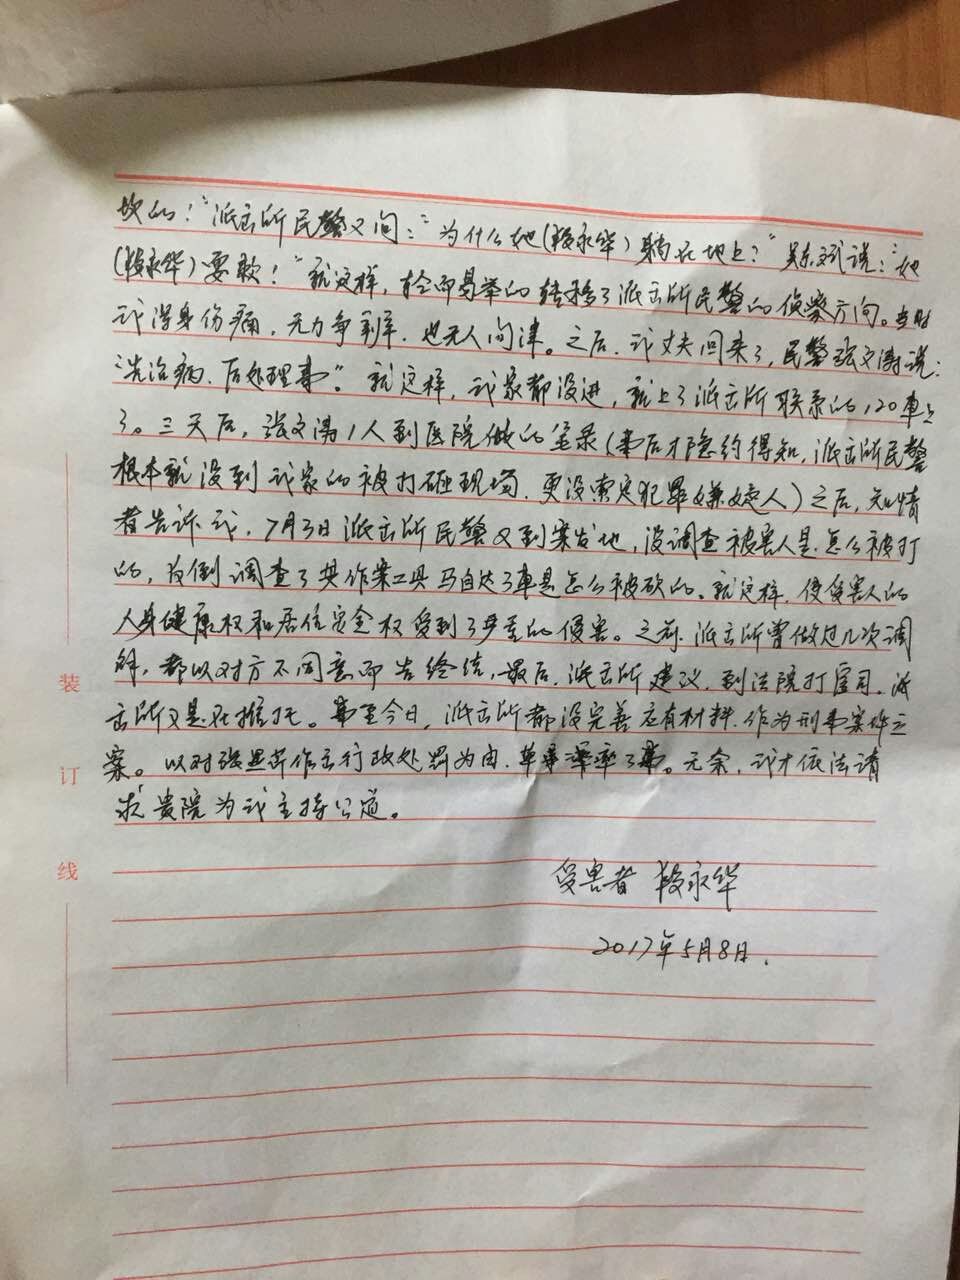 坎的！”派出所民警又问：“为什么她(段永华)躺在地上？”吴东斌说：“她
(段永华)耍歌！”就这样，轻而易举的转移了派出所民警的侦察方向。当时
我浑身伤痛，无力争利，也无人问津。之后，我丈夫回来了，民警张文涛说：
“先治病，后处理事”。就这样，我家都没进，就上了派出所联系的120车上
了。三天后，张文涛1人到医院做的笔录(事后才隐约得知，派出所民警
根本就没到我家的被打砸现场，更没索定犯罪嫌疑人)之后，知情
者告诉我，7月3日派出所民警又到案发地，没调查被害人是怎么被打
的，反倒调查了其作案工具马自达了车是怎么被砍的。就这样，使受害人的
人身健康权和居住安全权受到了严重的侵害。之前，派出所曾做过几次调
解，都以对方不同意而告终结，最后，派出所建议，到法院打官司。派
出所又是在推托。事至今日，派出所都没完善应有材料，作为刑事案件立
案。以对张思芹作出行政处罚为由，草草率了事。无奈，我才依法请
求贵院为我主持公道。
受害者 段永华
2017年5月8日.
装
订
线